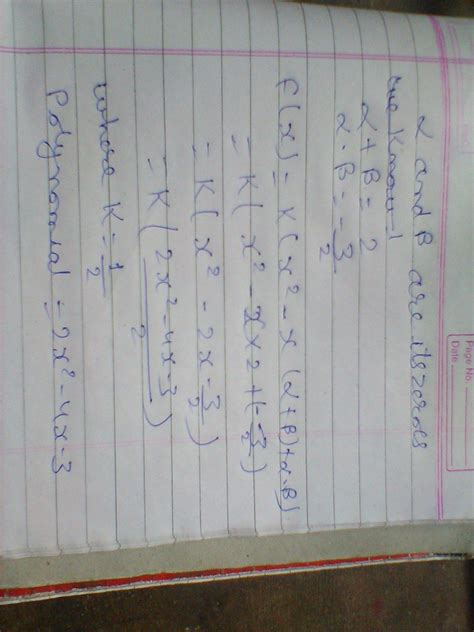 Page No.
Date
α and β are its zeroes
we know
α + β = 2
α · β = -3/2
f(x) = K(x² - x (α+β) + α·β)
= K( x² - x×2 + (-3/2)
= K( x² - 2x - 3/2 )
= K ( 2x² - 4x - 3 / 2 )
where K = 1/2
Polynomial = 2x² - 4x - 3